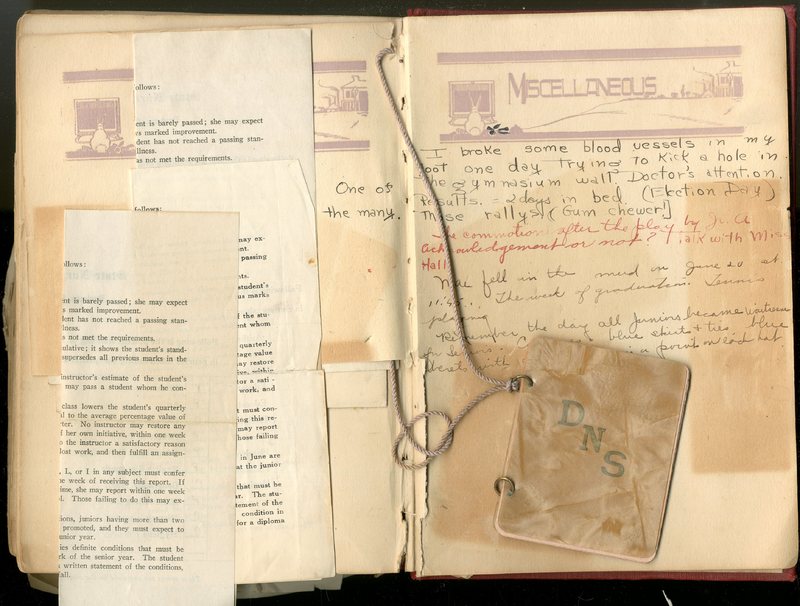 ollows:
ent is barely passed; she may expect
s marked improvement.
dent has not reached a passing stan-
llness.
as not met the requirements.
follows:
may ex-
ent.
passing
nts.
student's
us marks
of the stu-
ent whom
quarterly
tage value
may restore
tive, within
or a sati -
work, and
t must con-
ing this re-
may report
hose failing
in June are
at the junior
that must be
ar. The stu-
tement of the
condition in
for a diploma
ollows:
ent is barely passed; she may expect
s marked improvement.
dent has not reached a passing stan-
lness.
s not met the requirements.
ulative; it shows the student's stand-
supersedes all previous marks in the
instructor's estimate of the student's
may pass a student whom he con-
class lowers the student's quarterly
al to the average percentage value of
ter. No instructor may restore any
f her own initiative, within one week
o the instructor a satisfactory reason
lost work, and then fulfill an assign-
, L, or I in any subject must confer
he week of receiving this report. If
ime, she may report within one week
d. Those failing to do this may ex-
ions, juniors having more than two
promoted, and they must expect to
unior year.
ies definite conditions that must be
rk of the senior year. The student
written statement of the conditions,
fail.
One of
the many.
MISCELLANEOUS
I broke some blood vessels in my
foot one day trying to kick a hole in
the gymnasium wall. Doctor's attention.
Results. = 2 days in bed. (Election Day)
Those rallys! (Gum chewer!)
The commotion after the play by Jr. A
Acknowledgement or not? Talk with Miss
Hall
fell in the mud on June 20 at
11:45... The week of graduation. Tennis
playing
Remember the day all juniors became waitresses
for seniors. blue skirts + ties. blue
berets with a point on each hat.
DNS